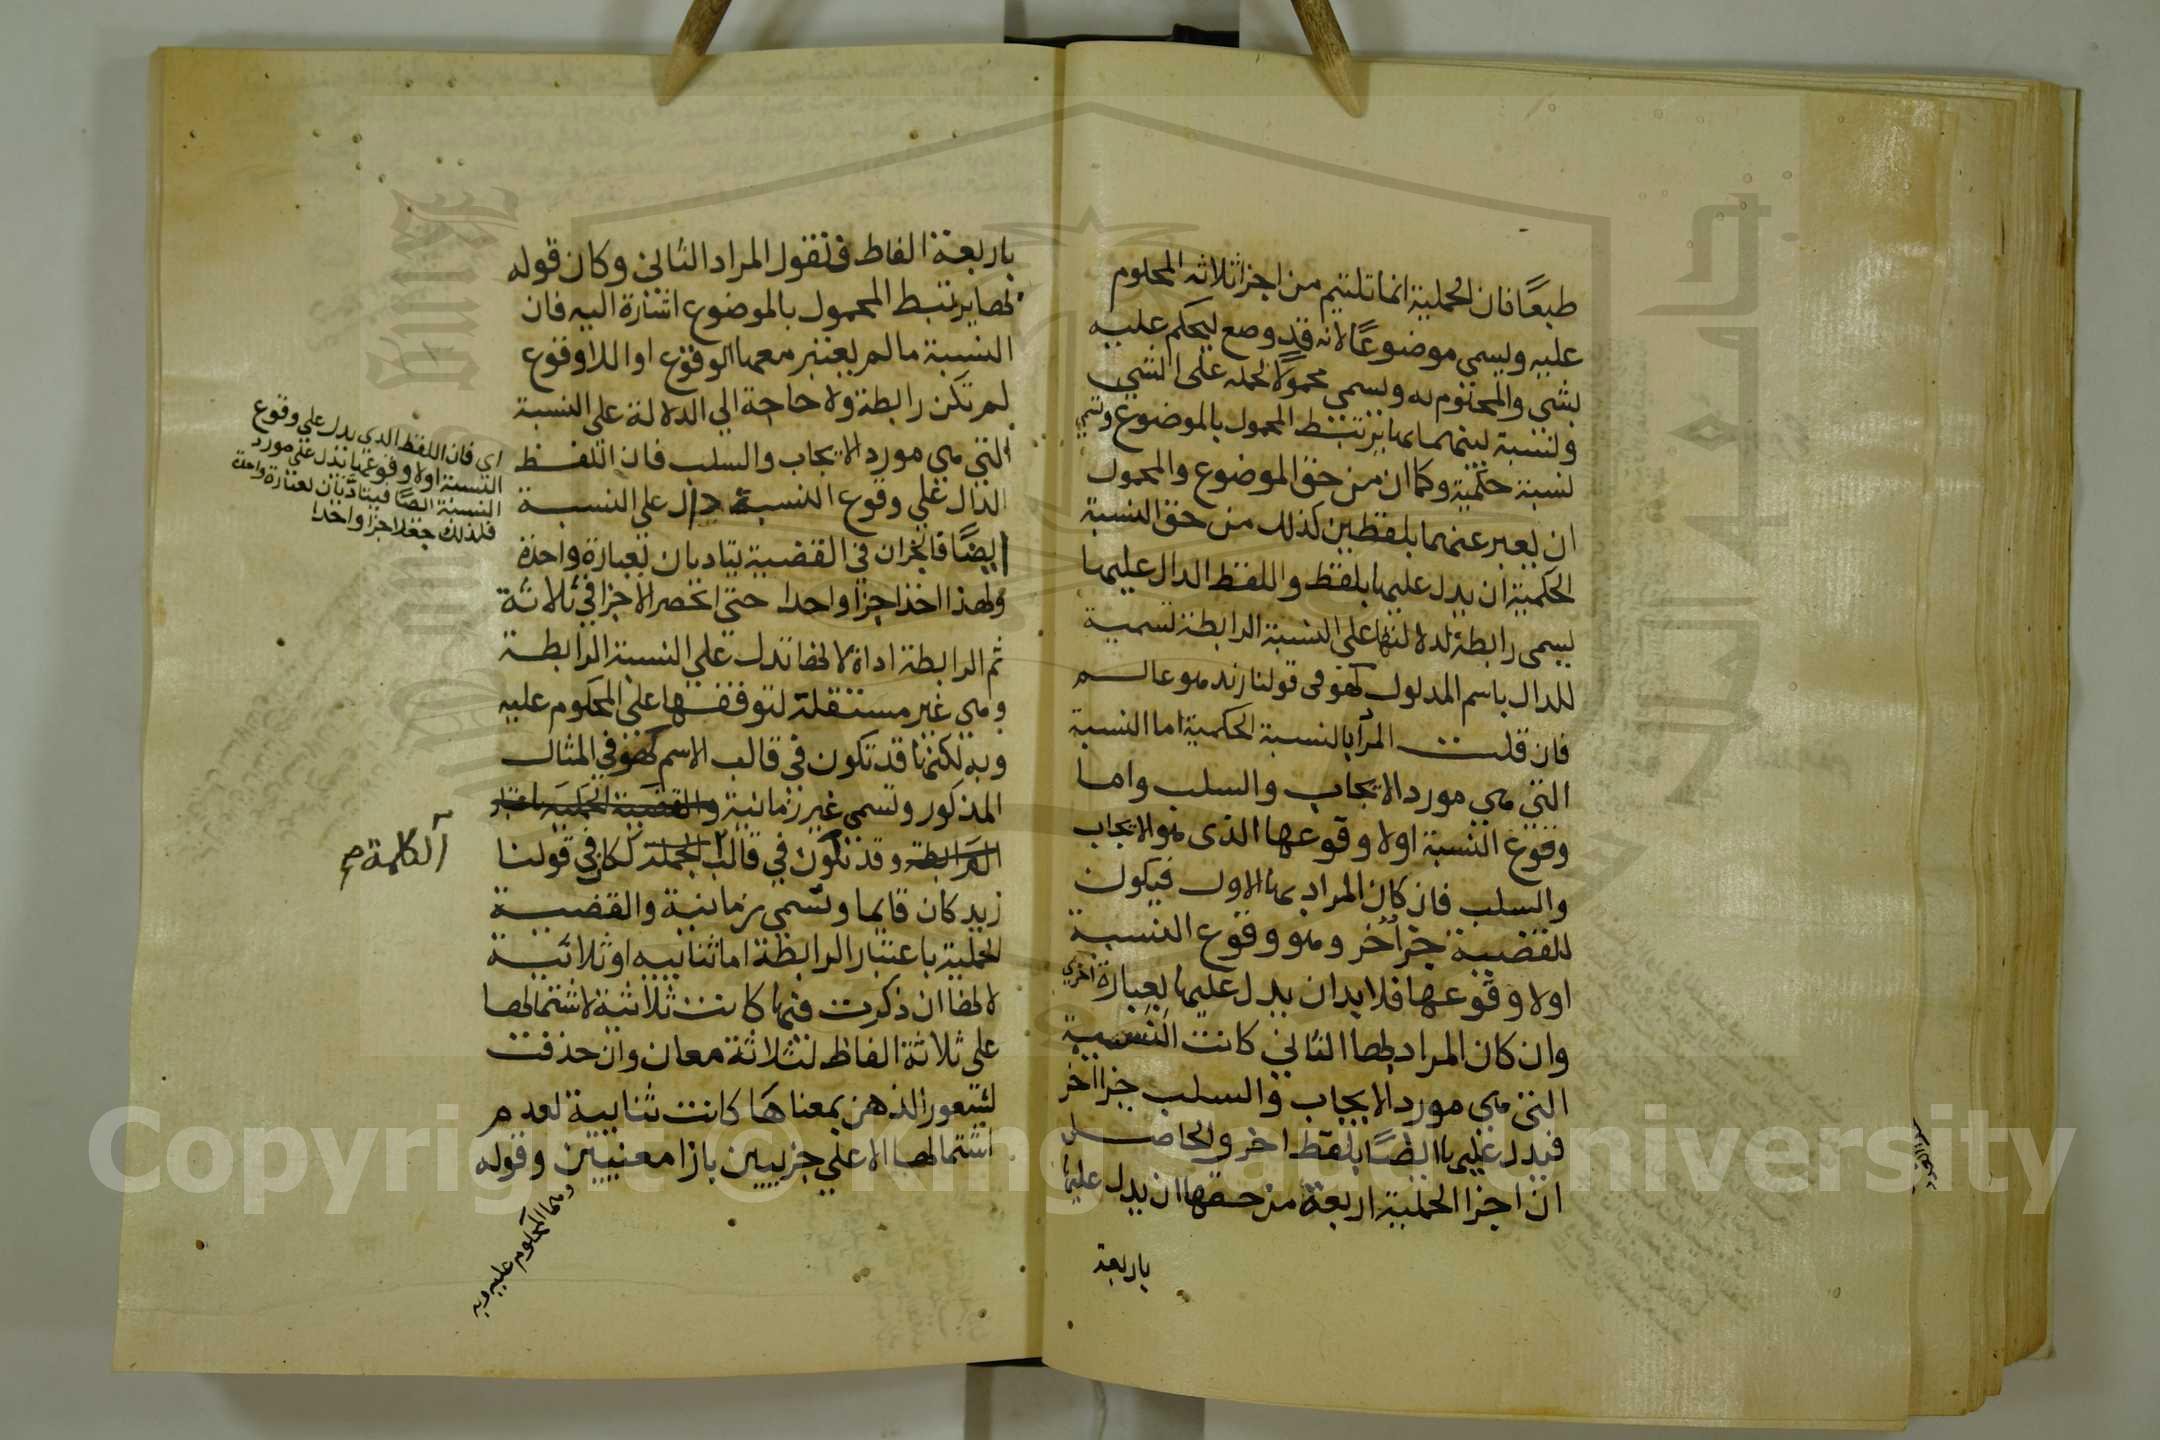 طبعًا فان الحملية انما تلتيم من اجزا ثلاثه المحلوم
عليه ويسمى موضوعًا لانه قد وضع ليحكم عليه
بشي والمحكوم به ويسمى محمولًا لحمله على الشي
ولنسبة بينهما بها يرتبط المحمول بالموضوع وتسمي
نسبة حكمية وكما ان من حق الموضوع والمحمول
ان يعبر عنهما بلفظين كذلك من حق النسبة
الحكمية ان يدل عليها بلفظ واللفظ الدال عليها
يسمى رابطة لدلالتها على النسبة الرابطة تسمية
للدال باسم المدلول كهو في قولنا زيد هو عالم
فان قلت المراد بالنسبة الحكمية اما النسبة
التي هي مورد الايجاب والسلب واما
وقوع النسبة اولا وقوعها الذى هو الايجاب
والسلب فان كان المراد بها الاول فيكون
للقضية جزأ اخر وهو وقوع النسبة
اولا وقوعها فلا بد ان يدل عليها بعبارة اخري
وان كان المراد بها الثاني كانت النسبة
التي هي مورد الايجاب والسلب جزا اخر
فيدل عليها ايضًا بلفظ اخر والحاصل
ان اجزا الحملية اربعة من حقها ان يدل عليها
باربعة
باربعة الفاظ فنقول المراد الثاني وكان قوله
بها يرتبط المحمول بالموضوع اشارة اليه فان
النسبة ما لم يعتبر معها الوقوع او اللاوقوع
لم تكن رابطة ولا حاجة الي الدلالة على النسبة
التي هي مورد الايجاب والسلب فان اللفظ
الدال علي وقوع النسبة دال على النسبة
ايضًا فالجزان في القضية يتاديان بعبارة واحدة
ولهذا اخذا جزا واحدا حتى انحصر الاجزا في ثلاثة
ثم الرابطة اداة لانها تدل علي النسبة الرابطة
وهي غير مستقلة لتوقفها على المحكوم عليه
وبه لكنها قد تكون في قالب الاسم كهو في المثال
المذكور وتسمى غير زمانية والقضية الحملية باعتبار
الرابطة وقد تكون في قالب الجملة ككان في قولنا
زيد كان قايما وتسمي زمانية والقضية
الحملية باعتبار الرابطة اما ثناييه او ثلاثية
لانها ان ذكرت فيها كانت ثلاثية لاشتمالها
على ثلاثة الفاظ لثلاثة معان وان حذفت
لشعور الذهن بمعناها كانت ثنايية لعدم
اشتمالها الا علي جزيين بازا معنيين وقوله
اي فان اللفظ الذي يدل على وقوع
النسبة اولا وقوعها يدل على مورد
النسبة ايضًا فيتاديان بعبارة واحدة
فلذلك جعلا جزا واحدا
الكلمة صح
وهما المحكوم عليه وبه
Copyright © King Saud University